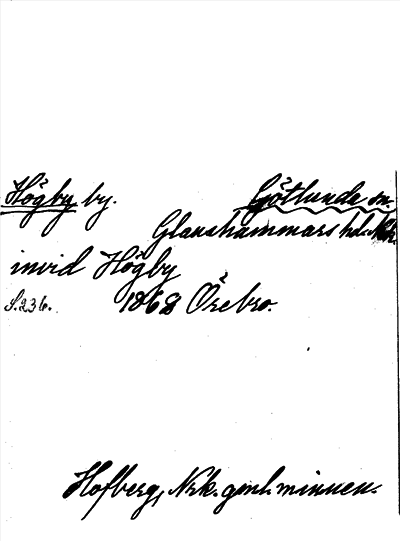 Högby by. Götlunda sn.
Glanshammars hd. Nrk.
invid Högby
S.236. 1868 Örebro.
Hofberg, Nrk. gml. minnen.